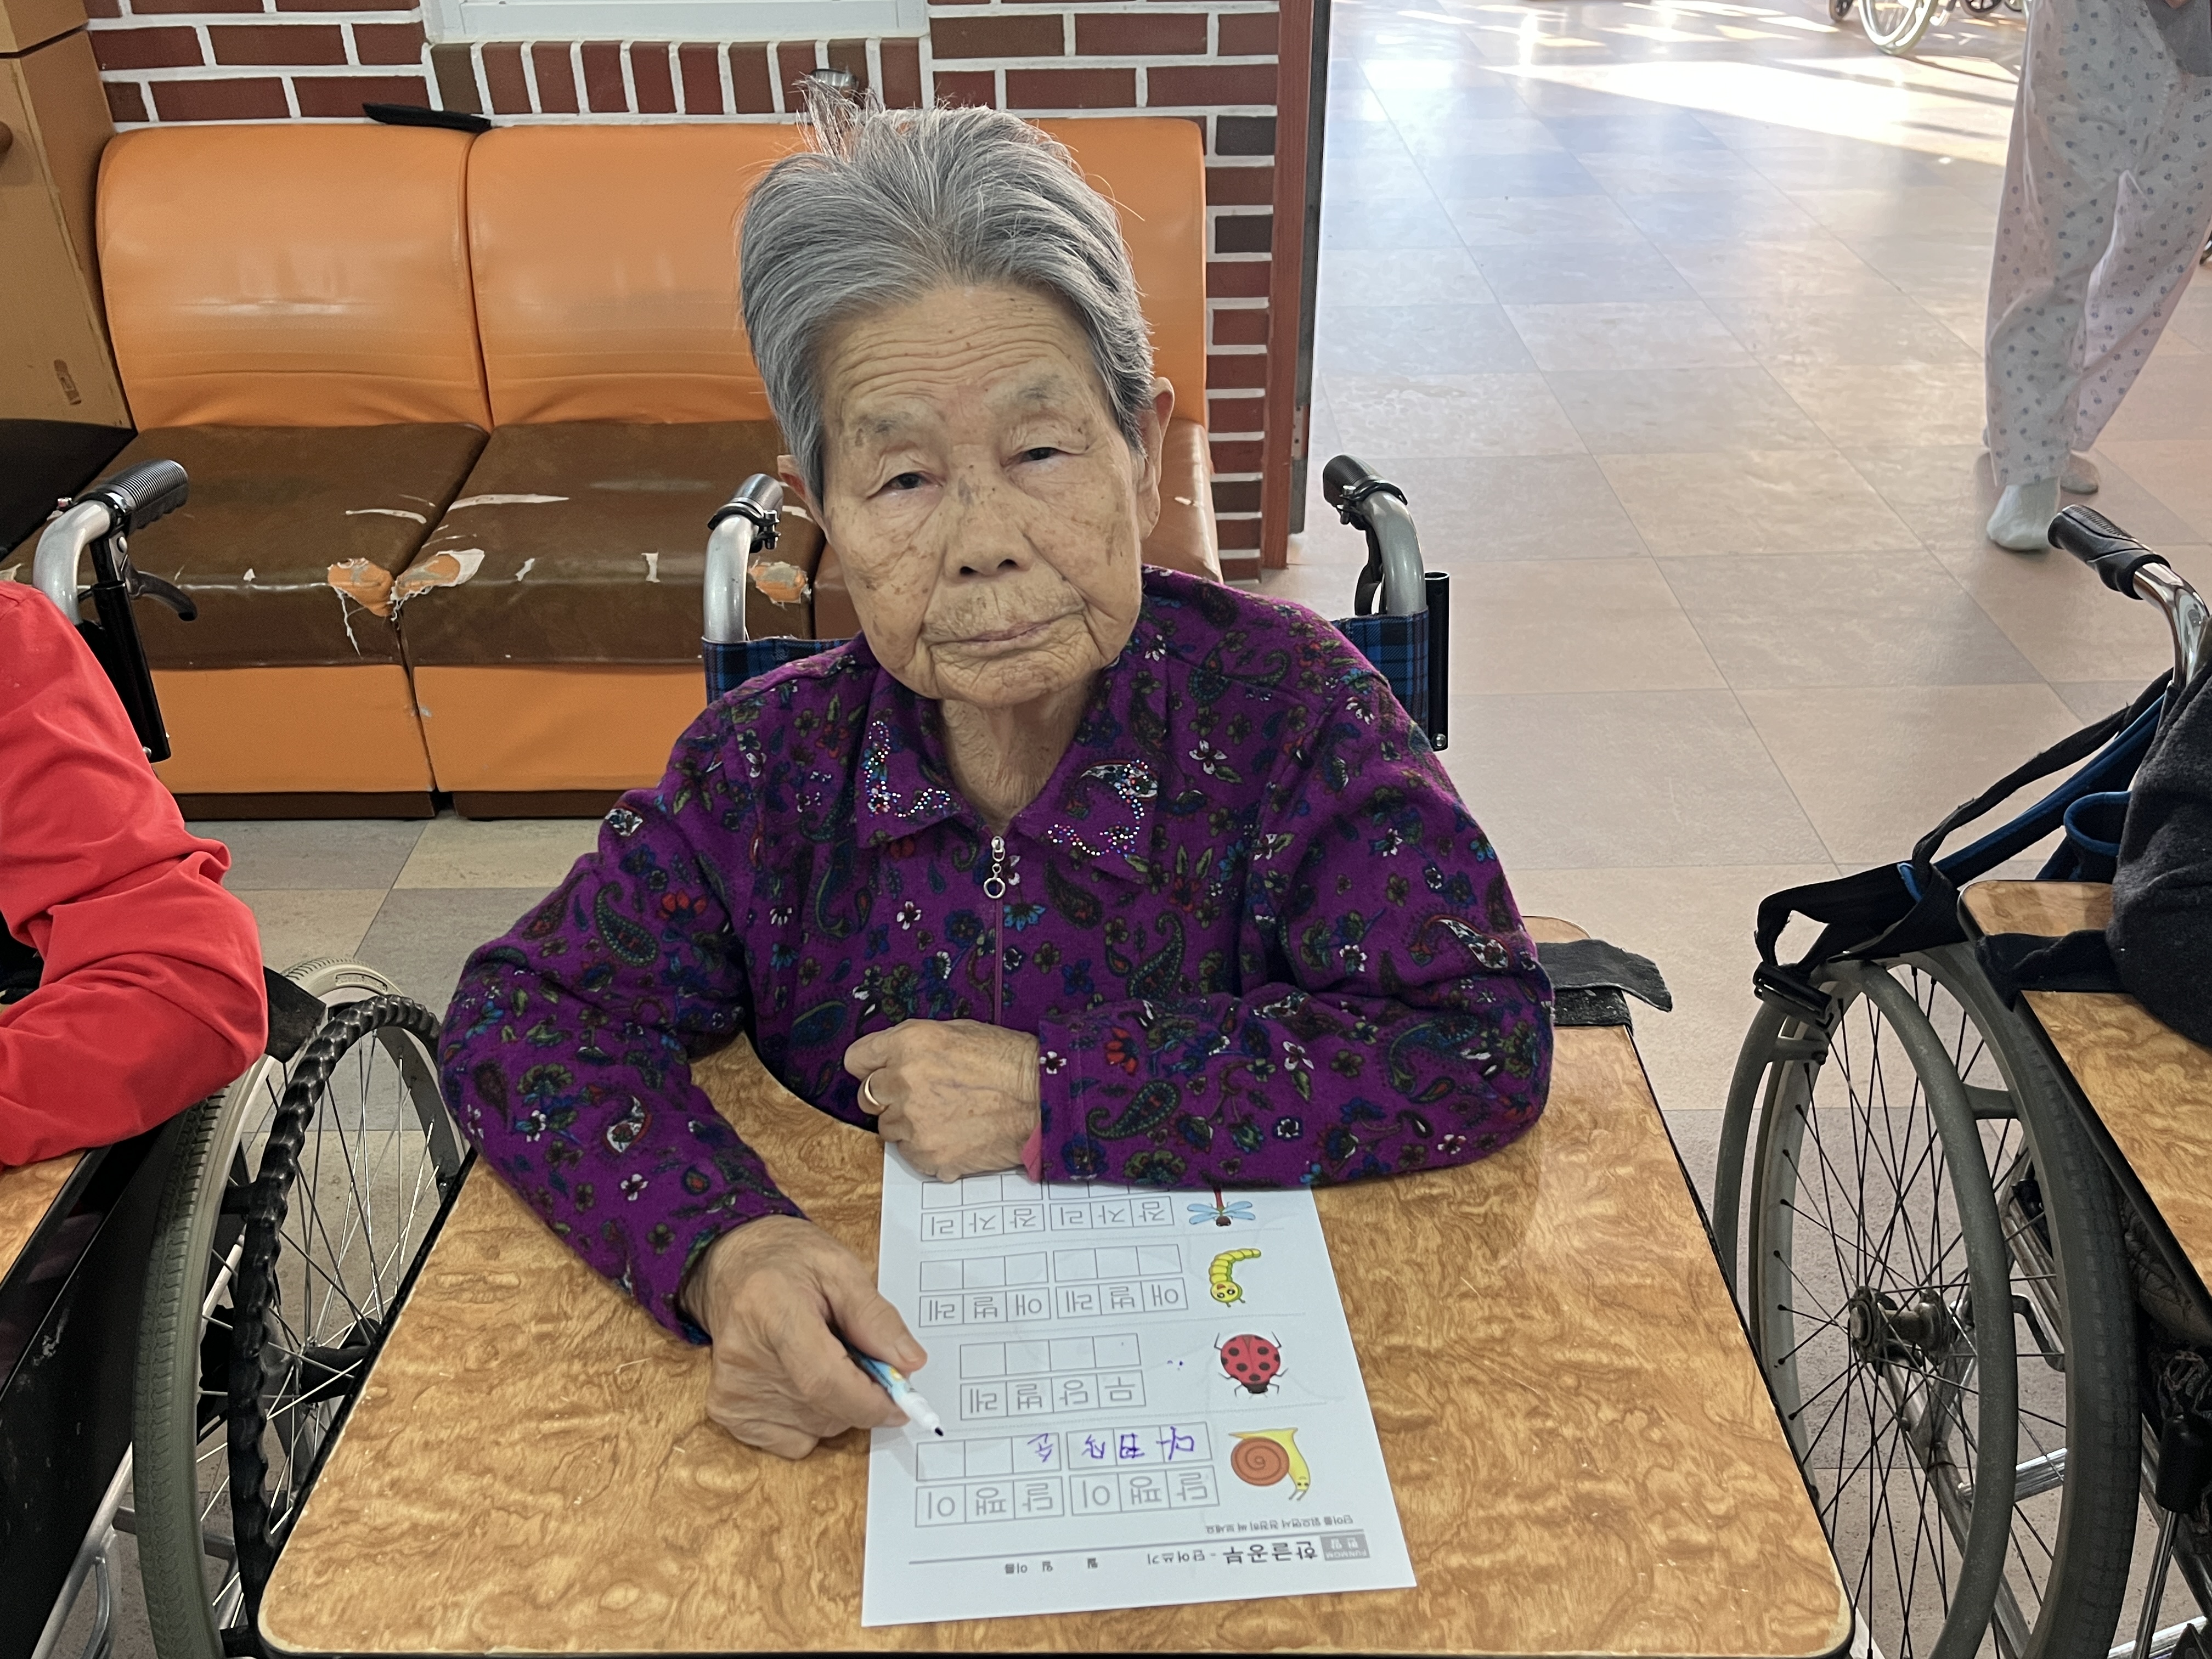 한글공부 - 단어쓰기 월 일 이름
FUNMOM 펀맘
단어를 읽으면서 천천히 써 보세요
달 팽 이 달 팽 이
무 당 벌 레
애 벌 레 애 벌 레
잠 자 리 잠 자 리